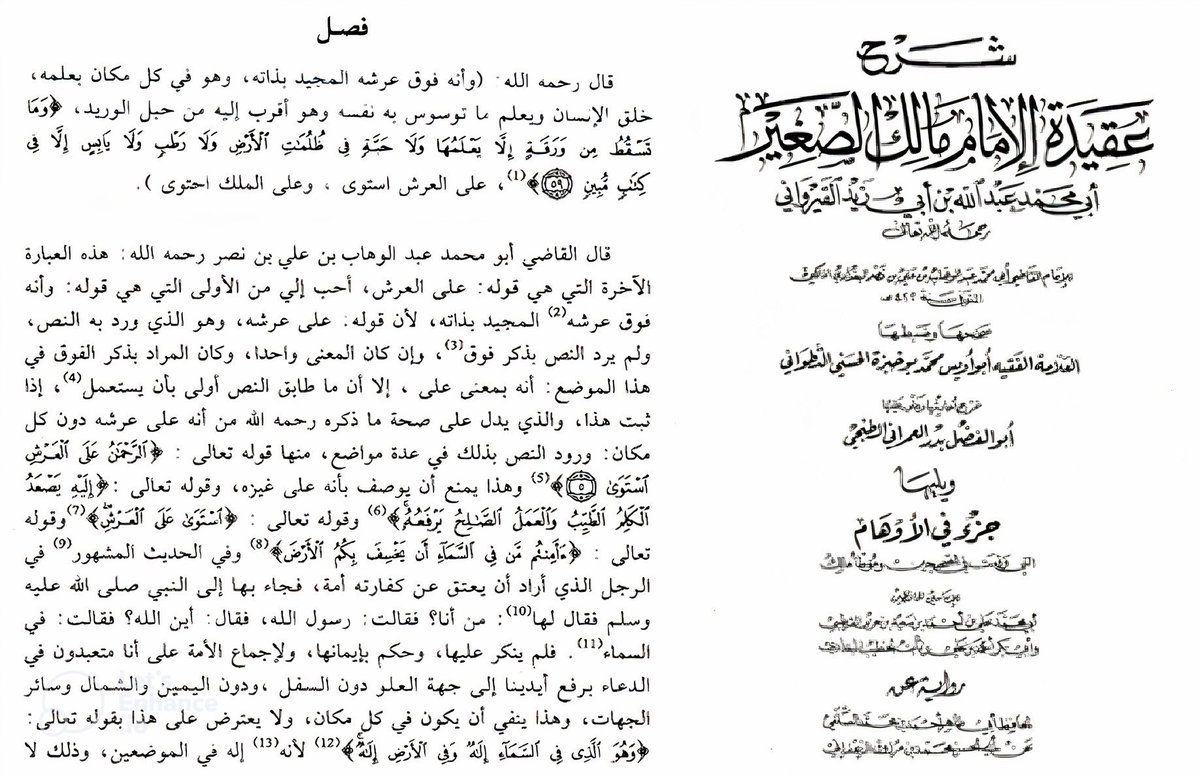 شرح
عقيدة الإمام مالك الصغير
أبي محمد عبد الله بن أبي زيد القيرواني
رحمه الله تعالى
للإمام القاضي أبي محمد عبد الوهاب بن علي بن نصر البغدادي المالكي
المتوفى سنة ٤٢٢هـ
صححها وضبطها
العلامة الفقيه أبو أويس محمد بوخبزة الحسني التطواني
خرج أحاديثها وعلق عليها
أبو الفضل بدر العمراني الطنجي
ويليها
جزء في الأوهام
التي وقعت في الصحيحين وموطأ مالك
رواية عن
فصل
قال رحمه الله: (وأنه فوق عرشه المجيد بذاته، وهو في كل مكان بعلمه،
خلق الإنسان ويعلم ما توسوس به نفسه وهو أقرب إليه من حبل الوريد، ﴿وَمَا
تَسْقُطُ مِن وَرَقَةٍ إِلَّا يَعْلَمُهَا وَلَا حَبَّةٍ فِى ظُلُمَٰتِ ٱلْأَرْضِ وَلَا رَطْبٍ وَلَا يَابِسٍ إِلَّا فِى
كِتَٰبٍ مُّبِينٍ ٥٩﴾(1)، على العرش استوى ، وعلى الملك احتوى ).
قال القاضي أبو محمد عبد الوهاب بن علي بن نصر رحمه الله: هذه العبارة
الآخرة التي هي قوله: على العرش، أحب إلي من الأولى التي هي قوله: وأنه
فوق عرشه(2) المجيد بذاته، لأن قوله: على عرشه، وهو الذي ورد به النص،
ولم يرد النص بذكر فوق(3)، وإن كان المعنى واحدا، وكان المراد بذكر الفوق في
هذا الموضع: أنه بمعنى على ، إلا أن ما طابق النص أولى بأن يستعمل(4)، إذا
ثبت هذا، والذي يدل على صحة ما ذكره رحمه الله من أنه على عرشه دون كل
مكان: ورود النص بذلك في عدة مواضع، منها قوله تعالى : ﴿ٱلرَّحْمَٰنُ عَلَى ٱلْعَرْشِ
ٱسْتَوَىٰ ٥﴾(5) وهذا يمنع أن يوصف بأنه على غيزه، وقوله تعالى :﴿إِلَيْهِ يَصْعَدُ
ٱلْكَلِمُ ٱلطَّيِّبُ وَٱلْعَمَلُ ٱلصَّٰلِحُ يَرْفَعُهُۥ﴾(6) وقوله تعالى : ﴿ٱسْتَوَىٰ عَلَى ٱلْعَرْشِ﴾(7)وقوله
تعالى : ﴿ءَأَمِنتُم مَّن فِى ٱلسَّمَآءِ أَن يَخْسِفَ بِكُمُ ٱلْأَرْضَ﴾(8) وفي الحديث المشهور(9) في
الرجل الذي أراد أن يعتق عن كفارته أمة، فجاء بها إلى النبي صلى الله عليه
وسلم فقال لها(10): من أنا؟ فقالت: رسول الله، فقال: أين الله؟ فقالت: في
السماء(11). فلم ينكر عليها، وحكم بإيمانها، ولإجماع الأمة على أنا متعبدون في
الدعاء برفع أيدينا إلى جهة العلو دون السفل ،ودون اليمين والشمال وسائر
الجهات، وهذا ينفي أن يكون في كل مكان، ولا يعترض على هذا بقوله تعالى:
﴿وَهُوَ ٱلَّذِى فِى ٱلسَّمَآءِ إِلَٰهٌ وَفِى ٱلْأَرْضِ إِلَٰهٌ﴾(12) لأنه(13) إله في الموضعين، وذلك لا